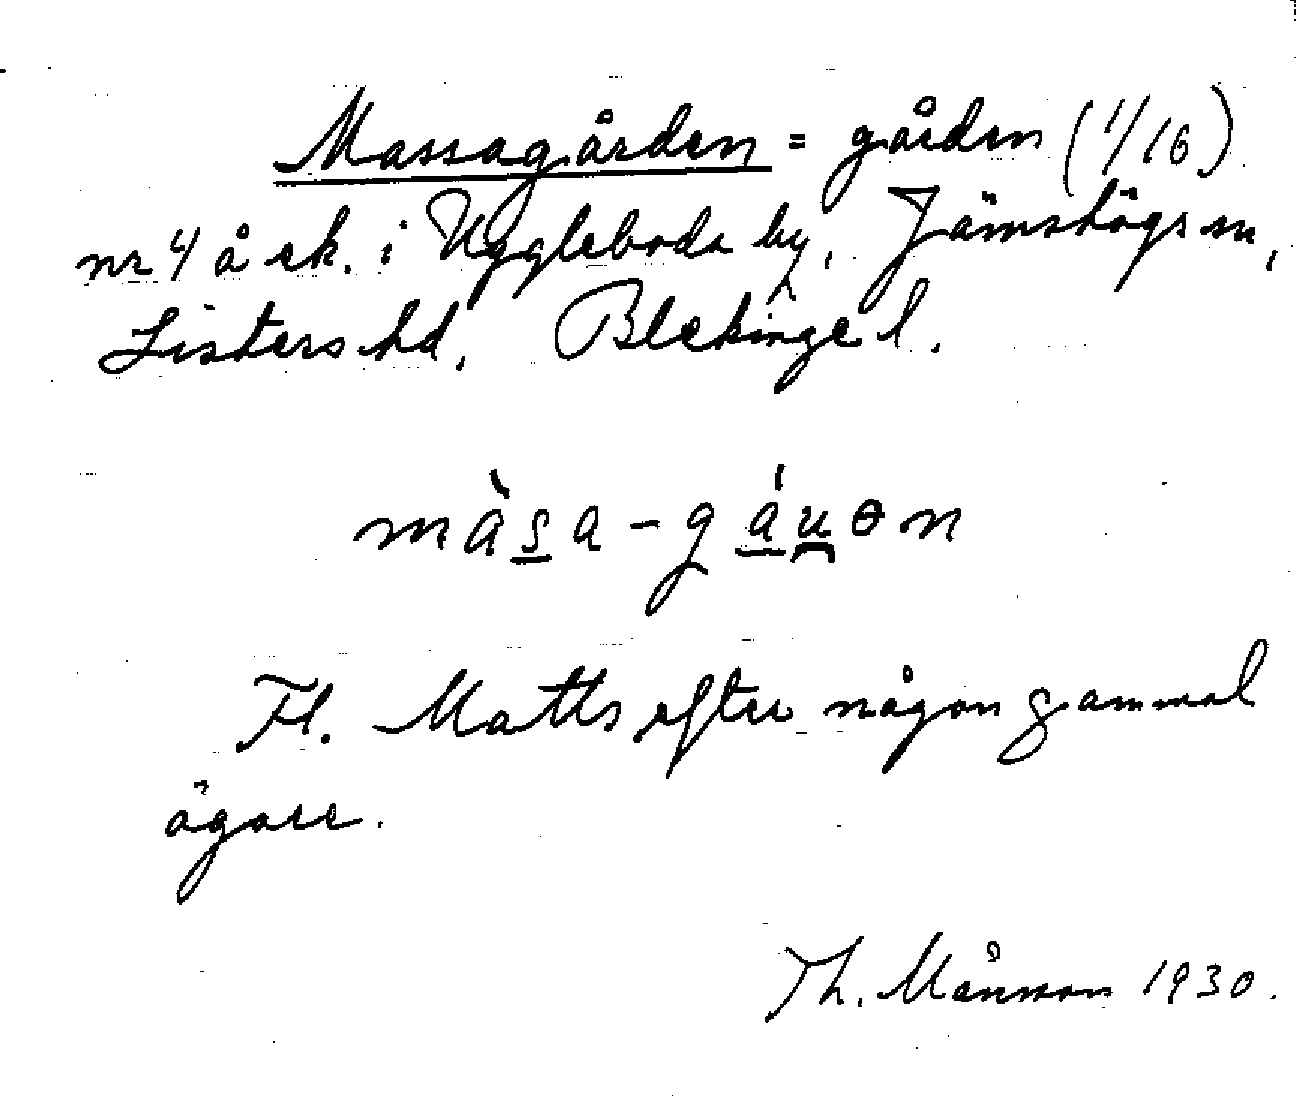 Massagården = gården (1/16)
nr 4 å ek. i Uggleboda by, Jämshögs sn,
Listers hd, Blekinge l.
màsa-gáuɵn
Fl. Matts efter någon gammal
ägare.
Th. Månsson 1930.